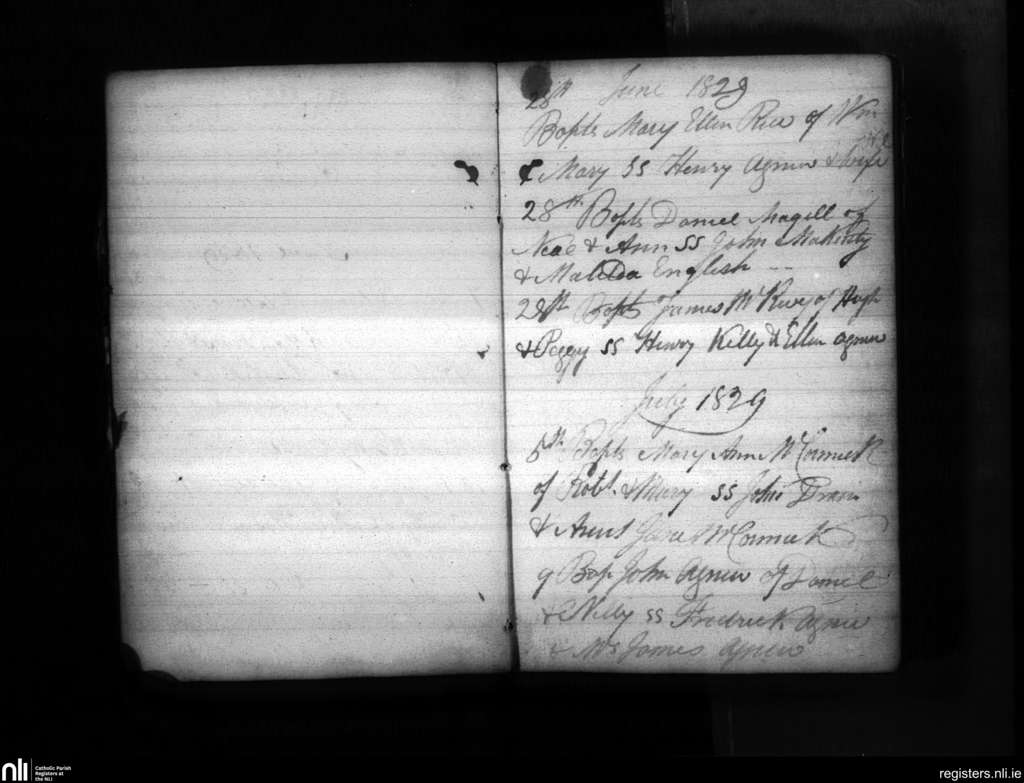 28th June 1829
Baptd Mary Ellen Rice of Wm
& Mary SS Henry Agnew & Wife
28th Baptd Daniel Magill of
& Ann SS John
& Matilda English
28th Baptd James of Hugh
& Peggy SS Henry Kelly & Ellen Agnew
July 1829
5th Baptd Mary Anne McCormick
of Robt. & Mary SS John
& Jane McCormick
9 Bap John Agnew of Daniel
& SS Fredrick Agnew
& James Agnew
nli
Catholic Parish
Registers at
the NLI
registers.nli.ie